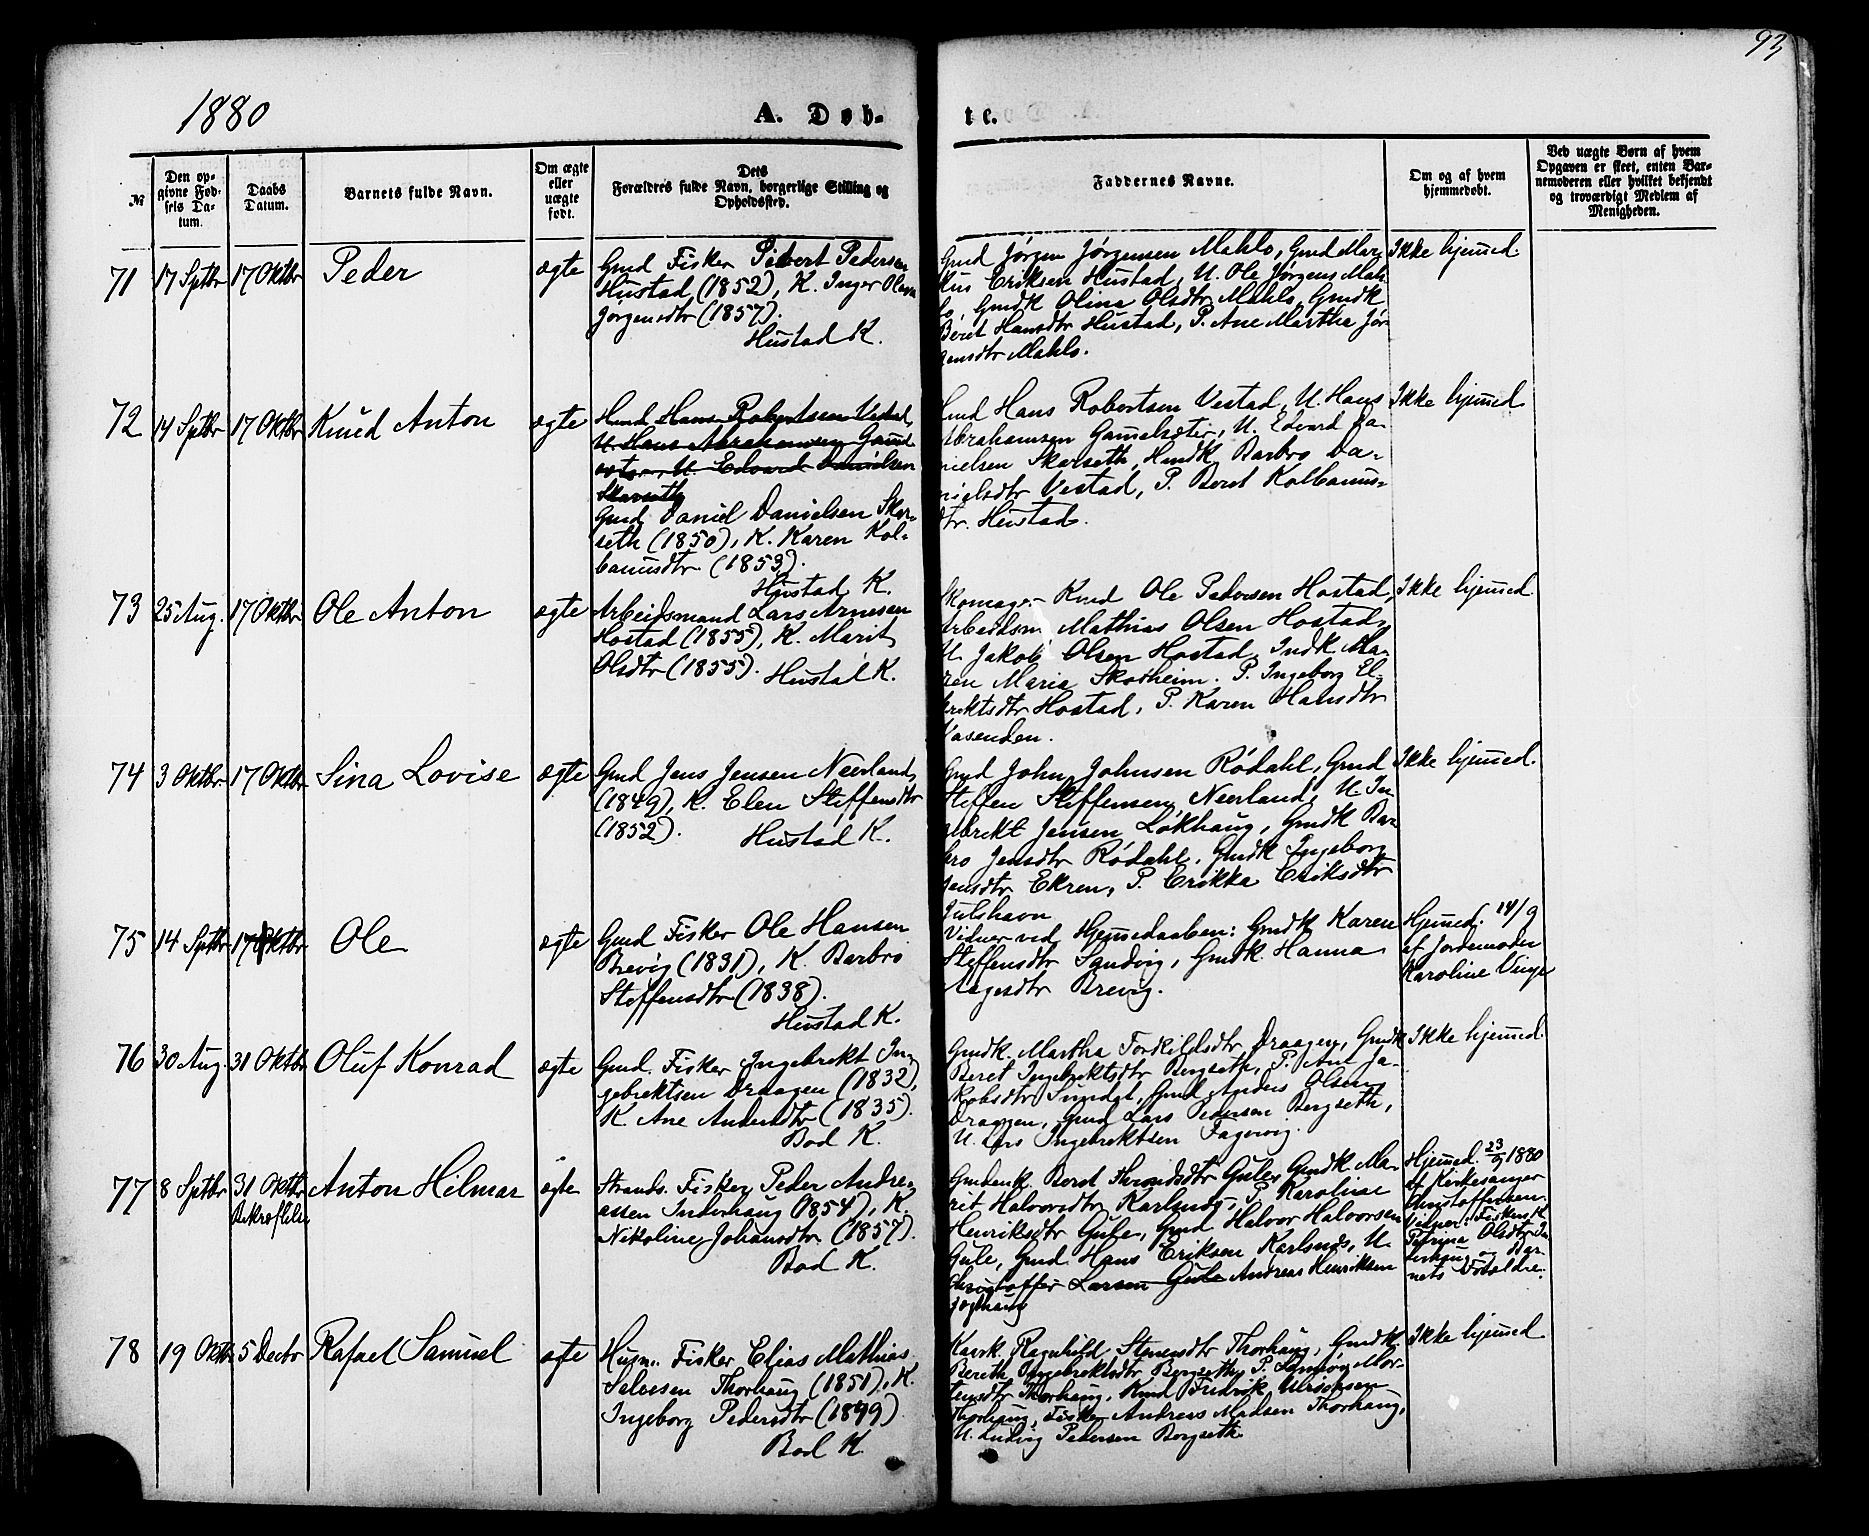 93
1880
A. Døb-
te.
№
Den op-
givne Fød-
sels Da-
tum.
Daabs
Datum.
Barnets fulde Navn.
Om ægte
eller
uægte
født.
Dets
Forældres fulde Navn, borgerlige Stilling og
Opholdssted.
Faddernes Navne.
Om og af hvem
hjemmedøbt.
Ved uægte Børn af hvem
Opgaven er skeet, enten Bar-
nemoderen eller hvilket bekjendt
og troværdigt Medlem af
Menigheden.
71 17 Sptbr 17 Oktbr Peder ægte
Gmd Fisker Pedersen
Hustad (1852), K. Inger Olava
Jørgensdtr (1857).
Hustad K.
Gmd Jørgen Jørgensen Mahlo, Gmd Mar-
kus Eriksen Hustad, U. Ole Jørgens Mah-
lo, Gmdk Olina Olsdtr Mahlo, Gmdk
Beret Hansdtr Hustad, P. Ane Martha Jør-
gensdtr Mahlo.
Ikke hjemmed.
72 14 Sptbr 17 Oktbr Knud Anton ægte
Hmd Hans Robertsen Vestad,
U. Hans Abrahamsen Gamel-
sæter, U. Edvard Danielsen
Skarseth
Gmd Daniel Danielsen Skar-
seth (1850), K. Karen Kol-
banusdtr (1853).
Hustad K.
Hmd Hans Robertsen Vestad, U. Hans
Abrahamsen Gamelsæter, U. Edvard Da-
nielsen Skarseth, Hmdk Barbro Da-
nielsdtr Vestad, P. Beret Kolbanus-
dtr. Hustad.
Ikke hjemmed
73 25 Aug. 17 Oktbr Ole Anton ægte
Arbeidsmand Lars Arnesen
Hostad (1855), K. Marit
Olsdtr (1855).
Hustad K.
Skomager Knud Ole Pedersen Hostad,
Arbeidsm Mathias Olsen Hostad,
U. Jakob Olsen Hostad, Indk Ma-
ren Maria Skodheim. P. Ingeborg El-
brektsdtr Hostad, P. Karen Hansdtr
Vasenden.
Ikke hjemmed
74 3 Oktbr. 17 Oktbr Sina Lovise ægte
Gmd Jens Jensen Neerland
(1849), K. Elen Steffensdtr
(1852).
Hustad K.
Gmd John Johnsen Rødahl, Gmd
Steffen Steffensen Neerland, U. In-
gebrekt Jensen Løkhaug, Gmdk Bar-
bro Jensdtr Rødahl. Gmdk Ingeborg
Jensdtr Ekren, P. Erikka Eriksdtr
Julshavn
Ikke hjemmed.
75 14 Sptbr 17 Oktbr Ole ægte
Gmd Fisker Ole Hansen
Brevig (1831), K. Barbro
Steffensdtr (1838).
Hustad K.
Vidner ved Hjemmedaaben: Gmdk Karen
Steffensdtr Sandvig, Gmdk. Hanna
Aagesdtr Brevig.
Hjemmed. 14/9
af Jordemoder
Karoline
76 30 Aug. 31 Oktbr Oluf Konrad ægte
Gmd. Fisker Ingebrekt In-
gebrektsen Draagen (1832),
K Ane Andersdtr (1835).
Bod K.
Gmdk. Martha Torkildsdtr Draagen, Gmdk
Beret Ingebrektsdtr Bergseth, P. Ane Ja-
kobsdtr Gmd Anders Olsen
Draagen, Gmd Lars Pedersen Bergseth,
U. Lars Ingebrektsen Fagervig.
Ikke hjemmed.
77 8 Sptbr 31 Oktbr Anton Hilmar ægte
Strands. Fisker Peder Andre-
assen Inderhaug (1854), K.
Nikoline Johansdtr (1857).
Bod K.
Gmdenk. Beret Gule, Gmdk Ma-
rit Halvorsdtr Karlsnes, P. Karoline
Henriksdtr Gule, Gmd Halvor Halvorsen
Gule, Gmd Hans Eriksen Karlsnes, U.
Christoffer Larsen Gule Andreas Henriksen
Hjemmed. 23/9 1880
af Kirkesanger
Christoffersen.
Vidner: Fiskers K
Petrina Olsdtr In-
derhaug og Bar-
nets Forældre.
78 19 Oktbr 5 Decbr Rafael Samuel ægte
Husm. Fisker Elias Mathias
Thorhaug (1851), K.
Ingeborg Pedersdtr (1849)
Bod K.
Kaark. Ragnhild Stenersdtr Thorhaug, Gmdk
Bereth Ingebrektsdtr Bergseth, P. Mor-
tensdtr Thorhaug, Knud Fredrik Ulriksen
Thorhaug, Fisker Andreas Madsen Thorhaug,
U. Ludvig Pedersen Bergseth.
Ikke hjemmed